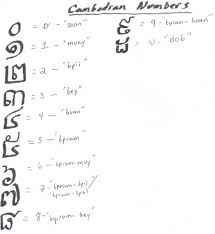 Cambodian Numbers
០ = 0 - "soon"
១ = 1 - "muoy"
២ = 2 - "bpii"
៣ = 3 - "bey"
៤ = 4 - "buan"
៥ = 5 - "bpram"
៦ = 6 - "bpram-muy"
៧ = 7 - "bpram-bpii/
៨ = 8 - "bpram-bey"
៩ = 9 - "bpram-buan"
= 10 - "dob"